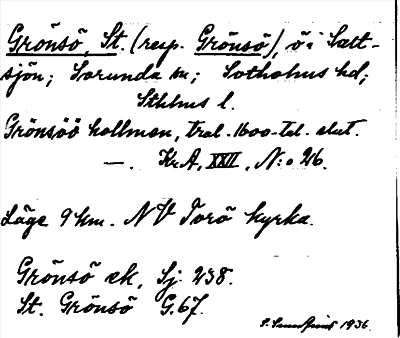 Grönsö, St. (resp. Grönsö), ö i Sätt-
sjön; Sorunda sn; Sotholms hd;
Sthlms l.
Grönsöö hollmen, tral. 1600-td. slut.
—. Kr.A, XXII, N:o 26.
Läge 9 km. NV Torö kyrka.
Grönsö ek, Sj. 238.
St. Grönsö G.67.
1936.